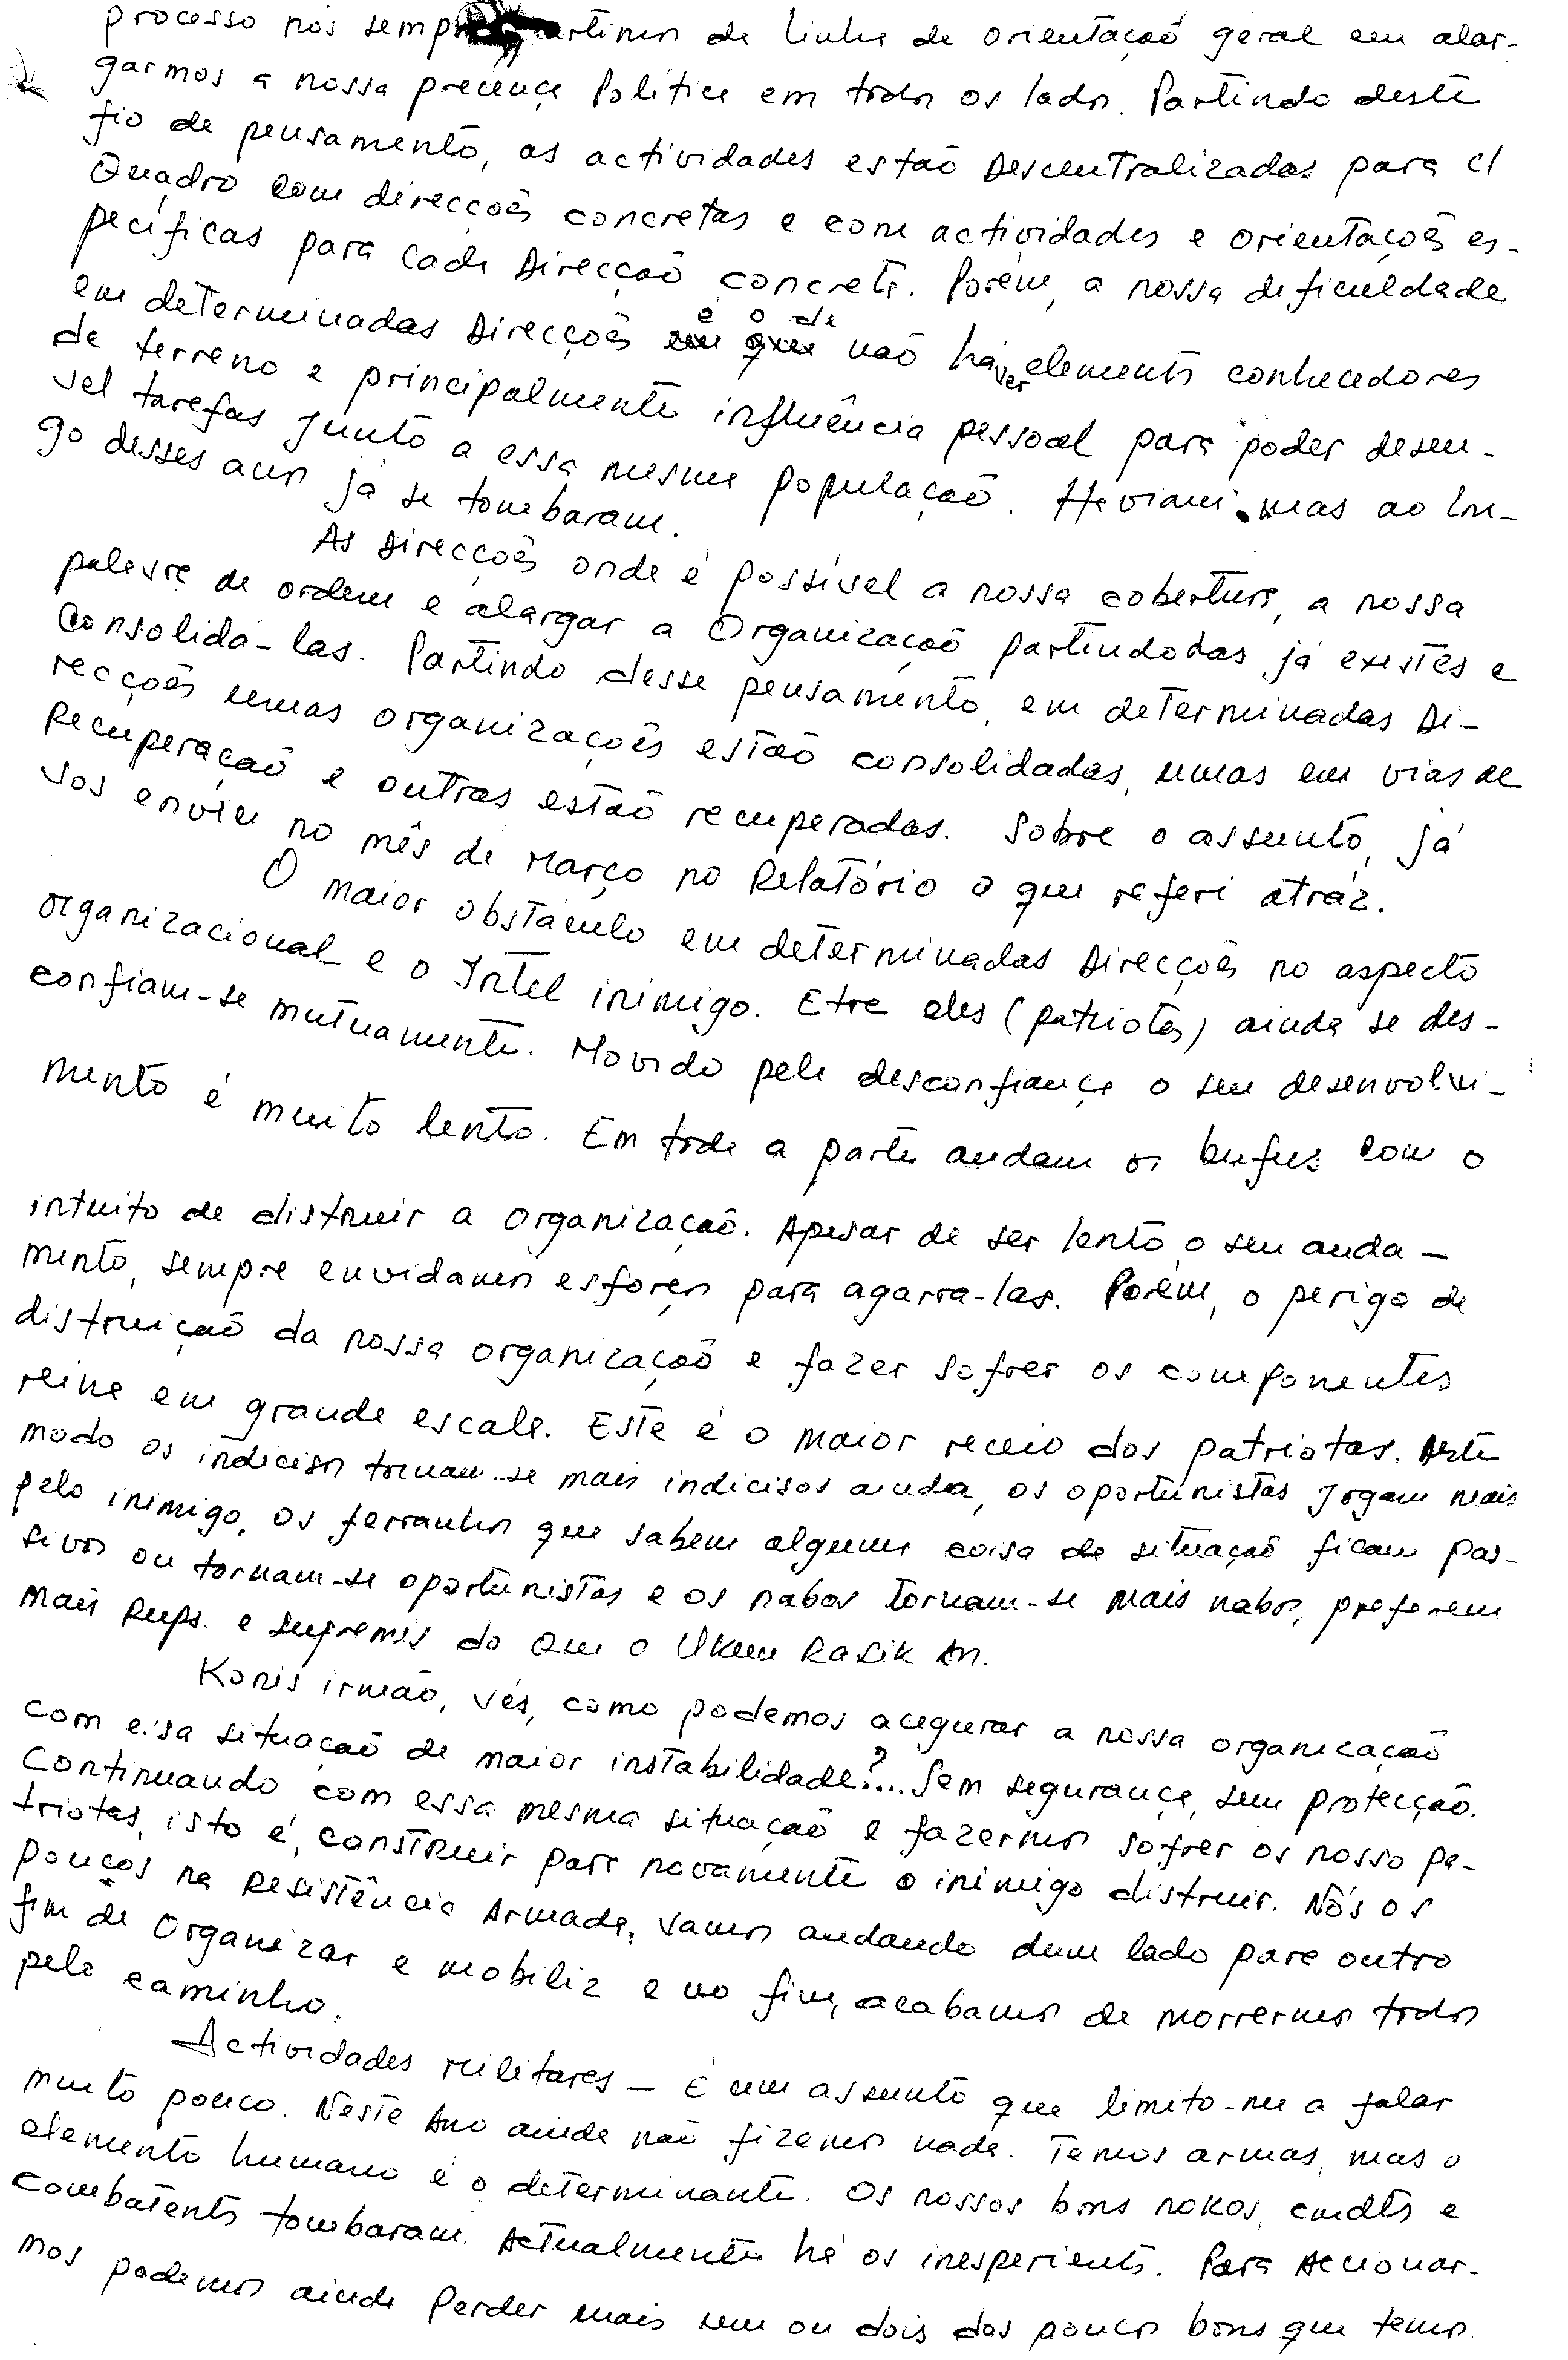 processo nós sempre partimos de linha de orientação geral em alar-
garmos a nossa precença Política em todos os lados. Partindo deste
fio de pensamento, as actividades estão Descentralizadas para c/
Quadro com direcções concretas e com actividades e orientações es-
pecíficas para cada Direcção concreta. Porém, a nossa dificuldade
em determinadas Direcções é o de não haver elementos conhecedores
de terreno e principalmente influência pessoal para poder desen-
vel tarefas junto a essa mesma população. Haviam, mas ao lon-
go desses anos já se tombaram.
As Direcções onde é possível a nossa cobertura, a nossa
palavra de ordem é alargar a Organização partindo das já existes e
Consolidá-las. Partindo desse pensamento, em determinadas Di-
recções umas organizações estão consolidadas, umas em vias de
Recuperação e outras estão recuperadas. Sobre o assunto, já
vos enviei no mês de Março no Relatório o que referi atráz.
O maior obstáculo em determinadas Direcções no aspecto
organizacional e o Intel inimigo. Etre eles (patriotas) ainda se des-
confiam-se mutuamente. Movido pela desconfiança o seu desenvolvi-
mento é muito lento. Em toda a parte andam os bufus com o
intuito de distruir a organização. Apesar de ser lento o seu anda-
mento, sempre envidamos esforços para agarra-las. Porém, o perigo de
distruição da nossa organização e fazer sofrer os componentes
reina em grande escala. Este é o maior receio dos patriotas. Deste
modo os indicisos tornam-se mais indicisos ainda, os oportunistas jogam mais
pelo inimigo, os ferranhos que sabem alguma coisa de situação ficam pas-
sivos ou tornam-se oportunistas e os nabos tornam-se mais nabos, preferem
mais Rups. e Supremis do que o Ukun Rasik An.
Konis irmão, vés, como podemos acegurar a nossa organização
com essa situação de maior instabilidade?... Sem segurança, sem protecção.
Continuando com essa mesma situação e fazermos sofrer os nosso pa-
triotas, isto é, construir para novamente o inimigo distruir. Nós os
poucos na Resistência Armada, vamos andando dum lado para outro
fim de Organizar e mobiliz e no fim, acabamos de morrermos todos
pelo caminho.
Actividades militares - É um assunto que limito-me a falar
muito pouco. Neste Ano ainda não fizemos nada. Temos armas, mas o
elemento humano é o determinante. Os nossos bons nokos, cmdts e
combatents tombaram. Actualmente há os inesperients. Para Accionar-
mos podemos ainda Perder mais um ou dois dos poucos bons que temos.